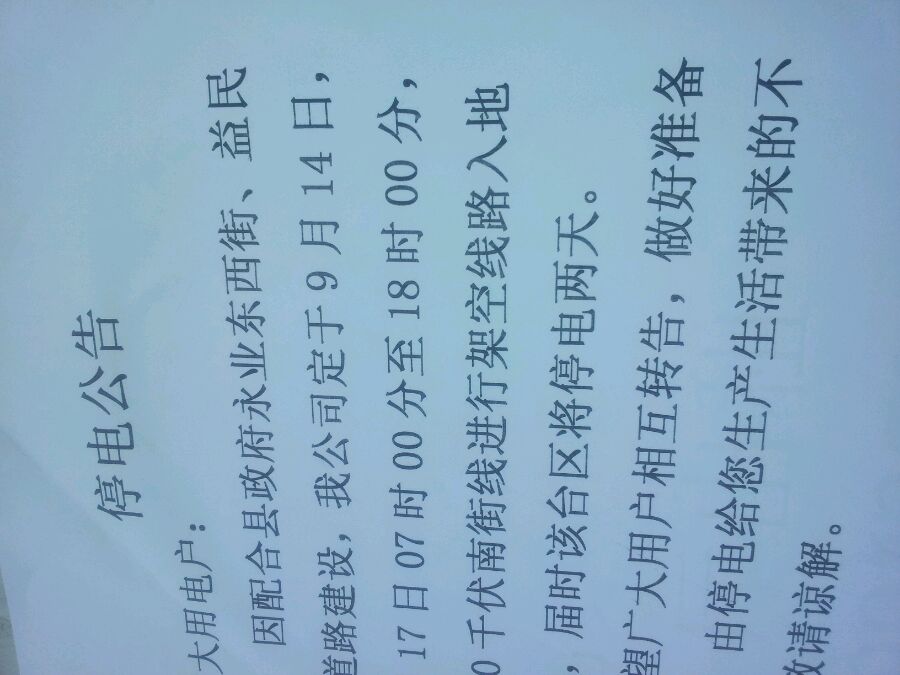 停电公告
大用电户：
因配合县政府永业东西街、益民
道路建设，我公司定于9月14日，
17日07时00分至18时00分，
0千伏南街线进行架空线路入地
，届时该台区将停电两天。
望广大用户相互转告，做好准备
由停电给您生产生活带来的不
敬请谅解。